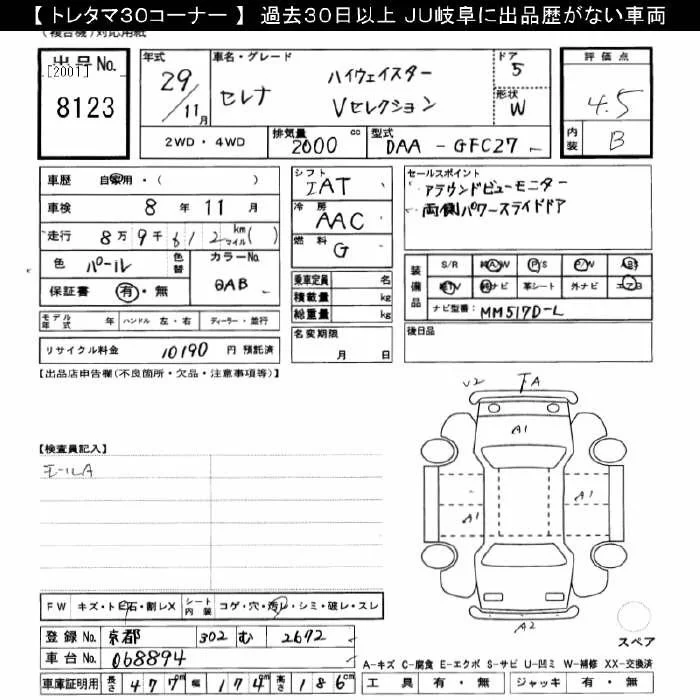 【トレタマ30コーナー】 過去30日以上 JU岐阜に出品歴がない車両
(複合機)対応用紙
出品No. [2001] 8123
年式 29/11月
車名・グレード セレナ ハイウェイスター Vセレクション
ドア 5
形状 W
評価点 4.5
内装 B
2WD・4WD 排気量 2000 cc 型式 DAA - GFC27
車歴 自家用・( )
車検 8年 11月
走行 8万9千612 km マイル( )
色 パール 色替 カラーNo. QAB
保証書 有・無
モデル年式 年 ハンドル 左・右 ディーラー・並行
リサイクル料金 10190 円 預託済
シフト IAT
冷房 AAC
燃料 G
乗車定員 名
積載量 kg
総重量 kg
名変期限 月 日
セールスポイント
アラウンドビューモニター
両側パワースライドドア
装備品 S/R 純AW P/S P/W AB
純TV 純ナビ 革シート 外ナビ エアB
ナビ型番: MM517D-L
後日品
【出品店申告欄(不良箇所・欠品・注意事項等)】
【検査員記入】
モールA
V2 FA
A1
A1
A1
A2
スペア
FW キズ・トビ石・割レX シート内装 コゲ・穴・汚レ・シミ・破レ・スレ
登録No. 京都 302 む 2672
車台No. 068894
車庫証明用 長さ 477cm 幅 174cm 高さ 186cm
A-キズ C-腐食 E-エクボ S-サビ U-凹ミ W-補修 XX-交換済
工具 有・無 ジャッキ 有・無